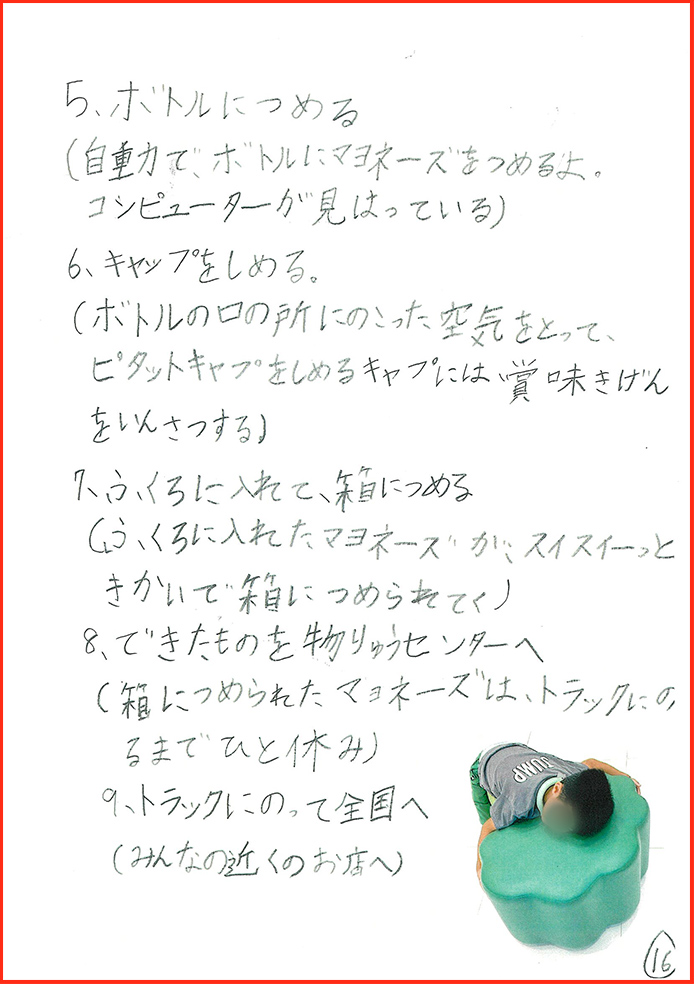 5、ボトルにつめる
(自重力で、ボトルにマヨネーズをつめるよ。
コンピューターが見はっている)
6、キャップをしめる。
(ボトルの口の所にのこった空気をとって、
ピタットキャプをしめるキャプには賞味きげん
をいんさつする)
7、ふくろに入れて、箱につめる
(ふくろに入れたマヨネーズが、スイスイーっと
きかいで箱につめられてく)
8、できたものを物りゅうセンターへ
(箱につめられたマヨネーズは、トラックにの
るまでひと休み)
9、トラックにのって全国へ
(みんなの近くのお店へ)
JUMP
16